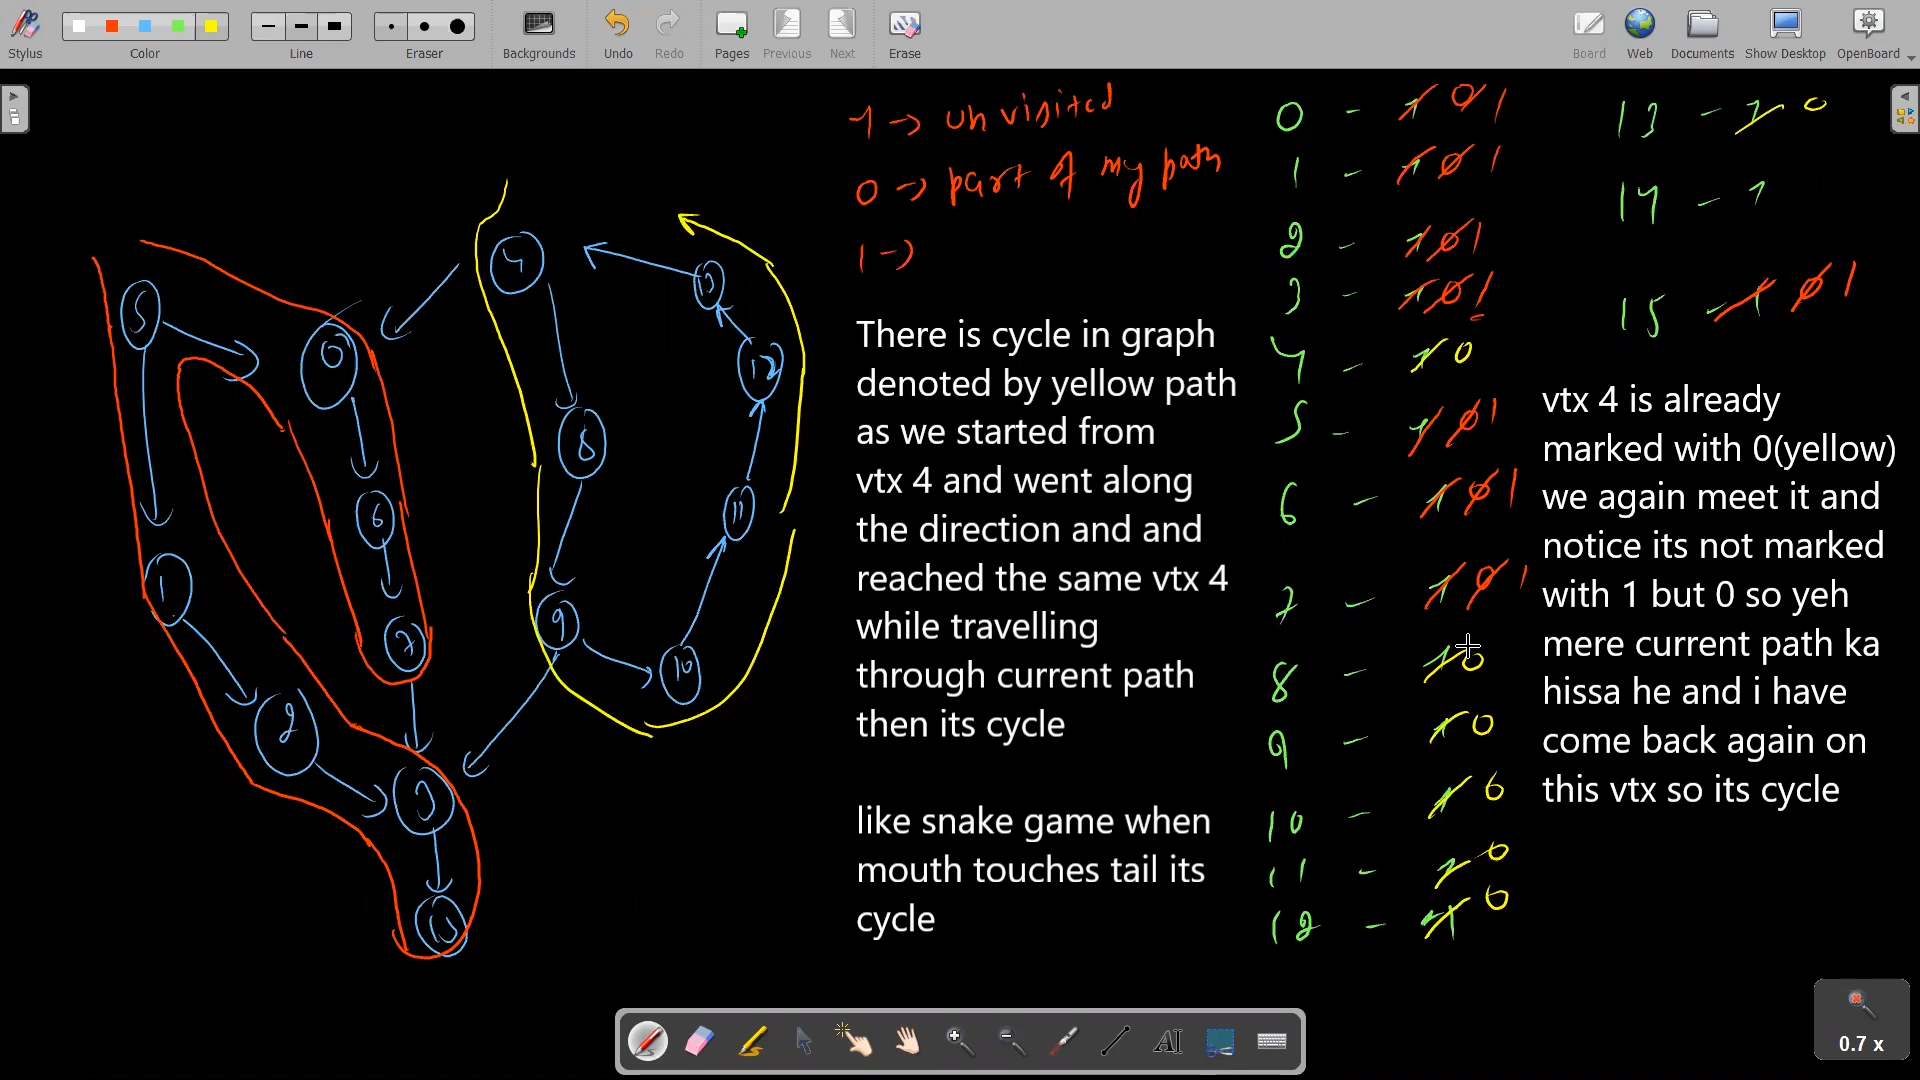 Stylus
Color
Line
Eraser
Backgrounds
Undo
Redo
Pages
Previous
Next
Erase
Board
Web
Documents
Show Desktop
OpenBoard
-1 -> unvisited
0 -> part of my path
1 ->
There is cycle in graph
denoted by yellow path
as we started from
vtx 4 and went along
the direction and and
reached the same vtx 4
while travelling
through current path
then its cycle
like snake game when
mouth touches tail its
cycle
5
0
6
7
1
2
3
4
8
9
10
11
12
13
0 - -1 0 1
1 - -1 0 1
2 - -1 0 1
3 - -1 0 1
4 - -1 0
5 - -1 0 1
6 - -1 0 1
7 - -1 0 1
8 - -1 0
9 - -1 0
10 - -1 0
11 - -1 0
12 - -1 0
13 - -1 0
14 - -1
15 - -1 0 1
vtx 4 is already
marked with 0(yellow)
we again meet it and
notice its not marked
with 1 but 0 so yeh
mere current path ka
hissa he and i have
come back again on
this vtx so its cycle
0.7 x